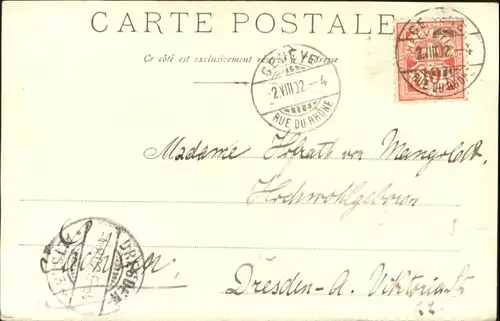 CARTE POSTALE
Ce côté est exclusivement réservé à l'adresse
GENÈVE
2.VIII.02.–4
RUE DU RHÔNE
2.VIII.02.–4
RUE DU RHÔNE
Madame Hofrath von Mangoldt
Hochwohlgeboren
DRESDEN
Dresden-A. Viktoriastr
22